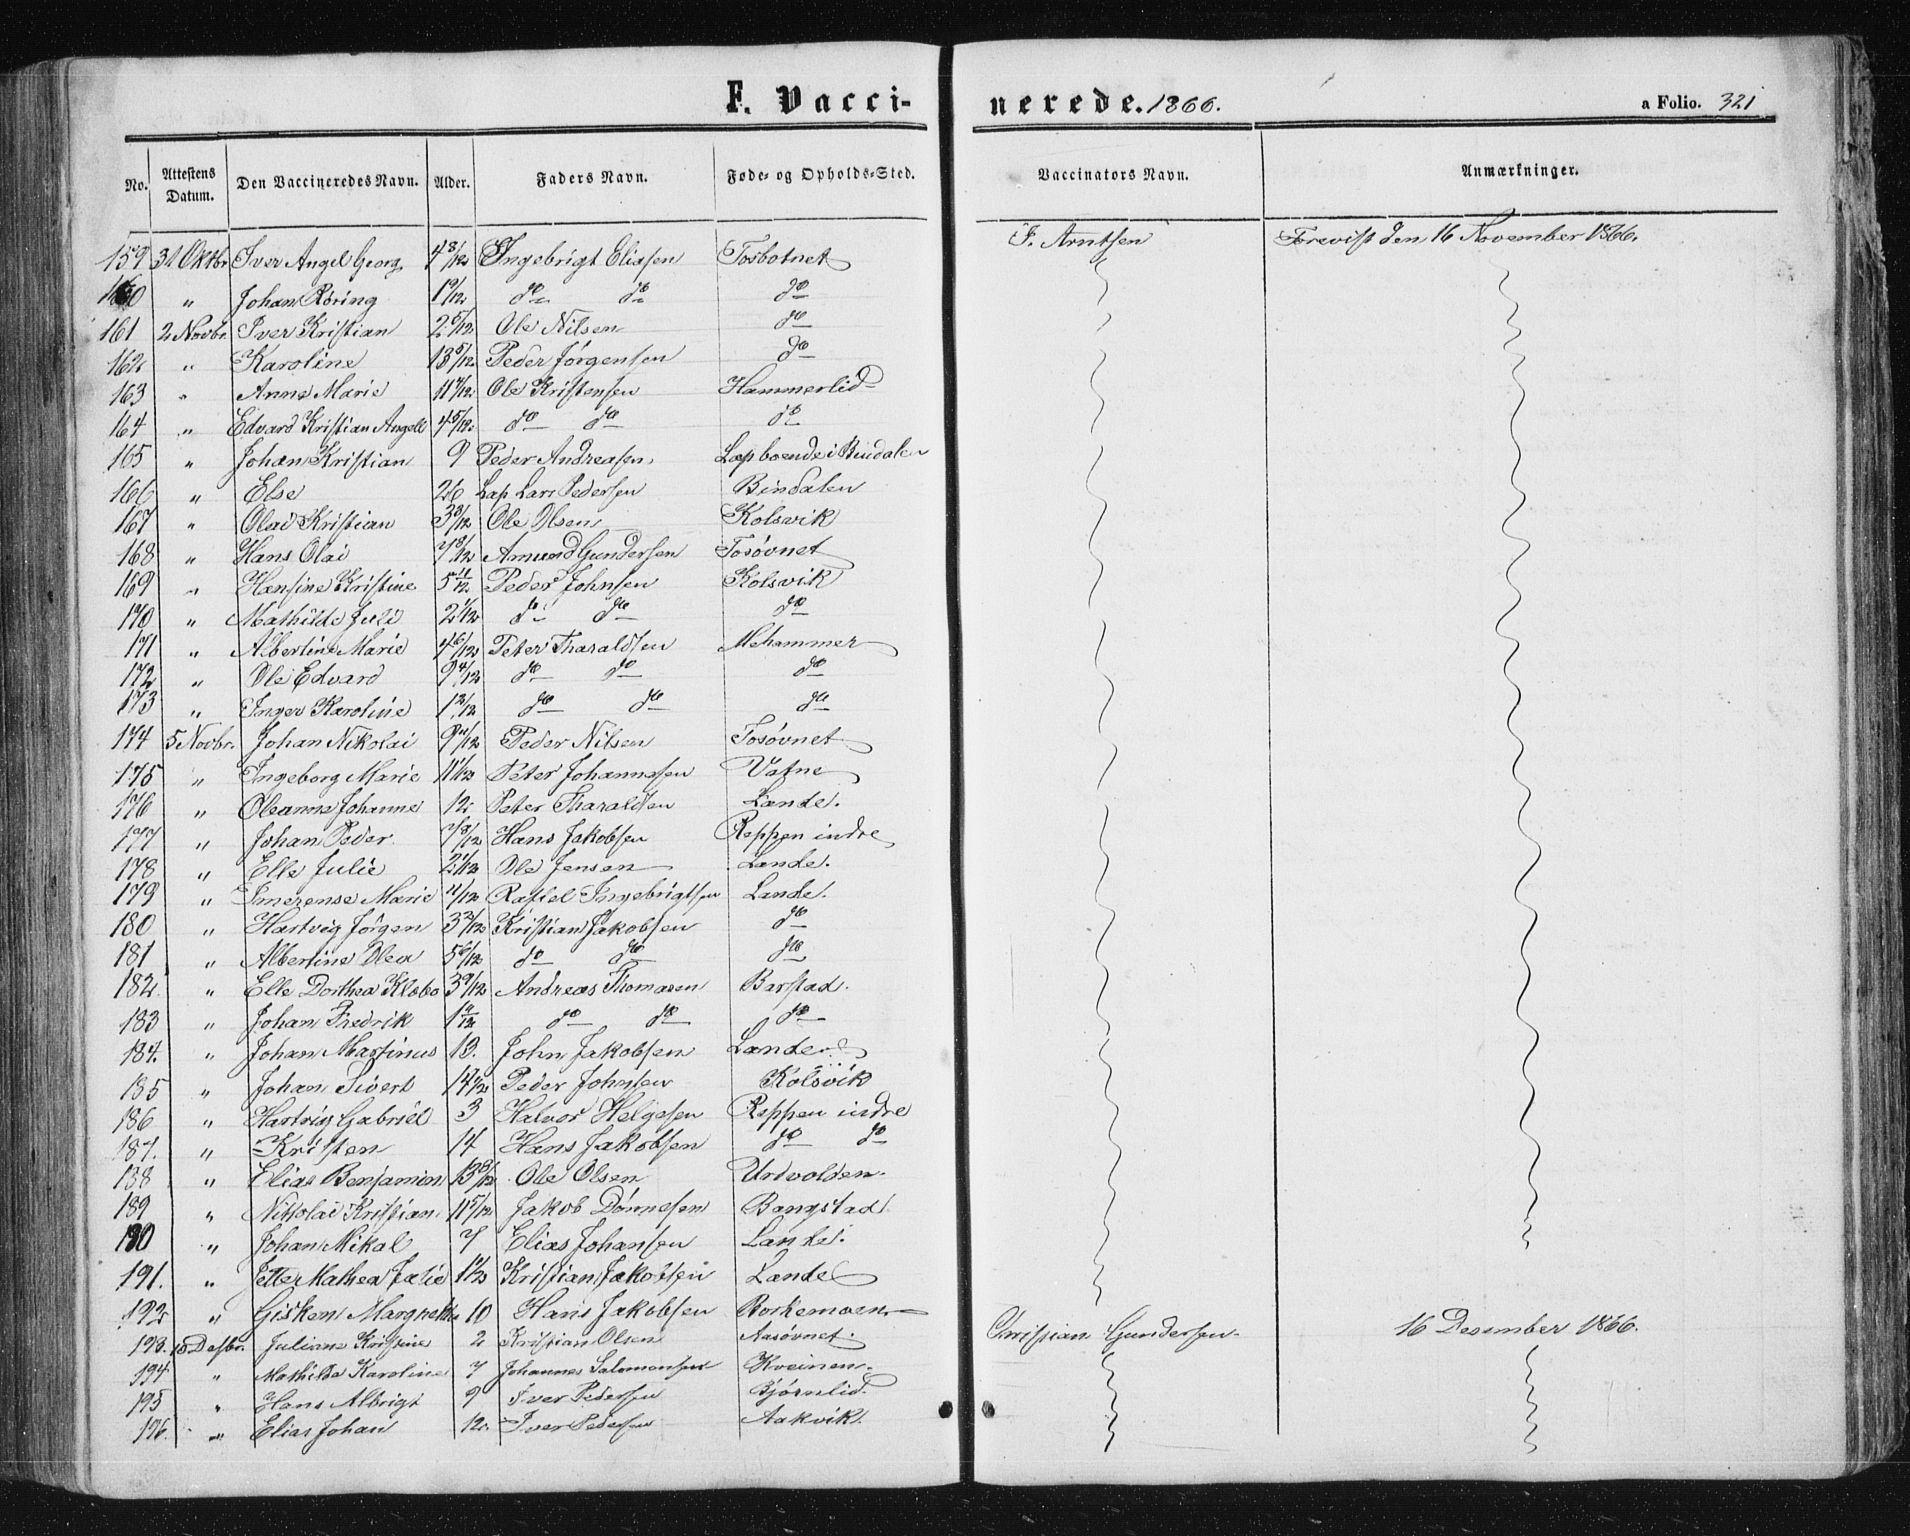 F. Vacci- nerede. 1866. a Folio. 321
No. Attestens Datum. Den Vaccineredes Navn. Alder. Faders Navn. Føde- og Opholds-Sted. Vaccinators Navn. Anmærkninger.
159 31 Oktbr Iver Angel Georg 4 8/12 Ingebrigt Eliasen Tosbotnet J. Arntsen Forevist den 16 November 1866.
160 " Johan Røring 1 9/12 do do do
161 2 Novbr. Iver Kristian 2 5/12 Ole Nilsen do
162 " Karoline 13 5/12 Peder Jørgensen do
163 " Anne Marie 11 7/12 Ole Kristensen Hammerlid
164 " Edvard Kristian Angell 4 5/12 do do do
165 " Johan Kristian 9 Peder Andreasen Lap boende i Bindalen
166 " Else 26 Lap Lars Pedersen Bindalen
167 " Olai Kristian 3 3/12 Ole Olsen Kolsvik
168 " Hans Olai 7 8/12 Amund Gundersen Tosøvnet
169 " Hansine Kristine 5 11/12 Peder Johnsen Kolsvik
170 " Mathilde Juli 2 1/12 do do do
171 " Albertine Marie 4 6/12 Peter Tharaldsen Mehammer
172 " Ole Edvard 9 4/12 do do do
173 " Inger Karoline 1 2/12 do do do
174 5 Novbr. Johan Nikolai 9 /12 Peder Nilsen Tosøvnet
175 " Ingeborg Marie 11 1/12 Peter Johannesen Vatne
176 " Oleanne Johanne 12 Peter Tharaldsen Lande.
177 " Johan Peder 7 8/12 Hans Jakobsen Reppen indre
178 " Elle Julie 2 1/12 Ole Jensen Lande.
179 " Imerense Marie 11/12 Rafiel Ingebrigtsen Lande.
180 " Hartvig Jørgen 3 2/12 Kristian Jakobsen do
181 " Albertine Olea 5 6/12 do do do
182. " Elle Dorthea Klæbo 3 9/12 Andreas Thomasen Barstad.
183 " Johan Fredrik 1 /12 do do do
184. " Johan Martinus 13. John Jakobsen Lande
185 " Johan Sivert 14 1/2 Peder Johnsen Kolsvik
186 " Hartvig Gabriel 3 Halvor Helgesen Reppen indre
187. " Kristen 14 Hans Jakobsen do do
188 " Elias Benjamin 13 8/12 Ole Olsen Urdvolden.
189 " Nikolai Kristian 11 5/12 Jakob Dønnesen Bangstad
190 " Johan Mikal 7 Elias Johansen Lande.
191. " Jette Mathea Julie 1 1/2 Kristian Jakobsen Lande
192 " Gisken Margrethe 10 Hans Jakobsen Horkemoen
193. 15 Desbr. Juliane Kristine 2 Kristian Olsen Aasøvnet. Christian Gundersen. 16 Desember 1866.
194. " Mathilde Karoline 7 Johannes Salomonsen Kveinen.
195 " Hans Albrigt 9 Iver Pedersen Bjørnlid.
196. " Elias Johan 12. Iver Pedersen Aakvik.